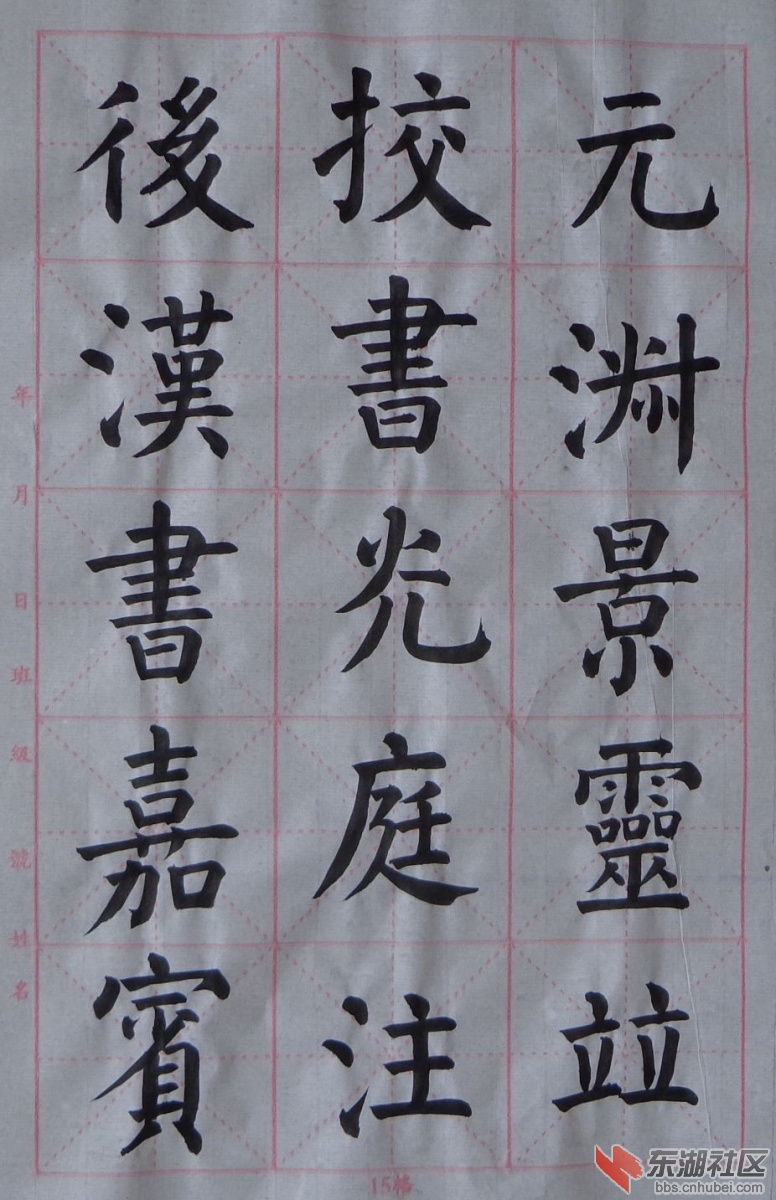 元淵景靈竝
挍書光庭注
後漢書嘉賓
年月日班級號姓名
15格
东湖社区
bbs.cnhubei.com